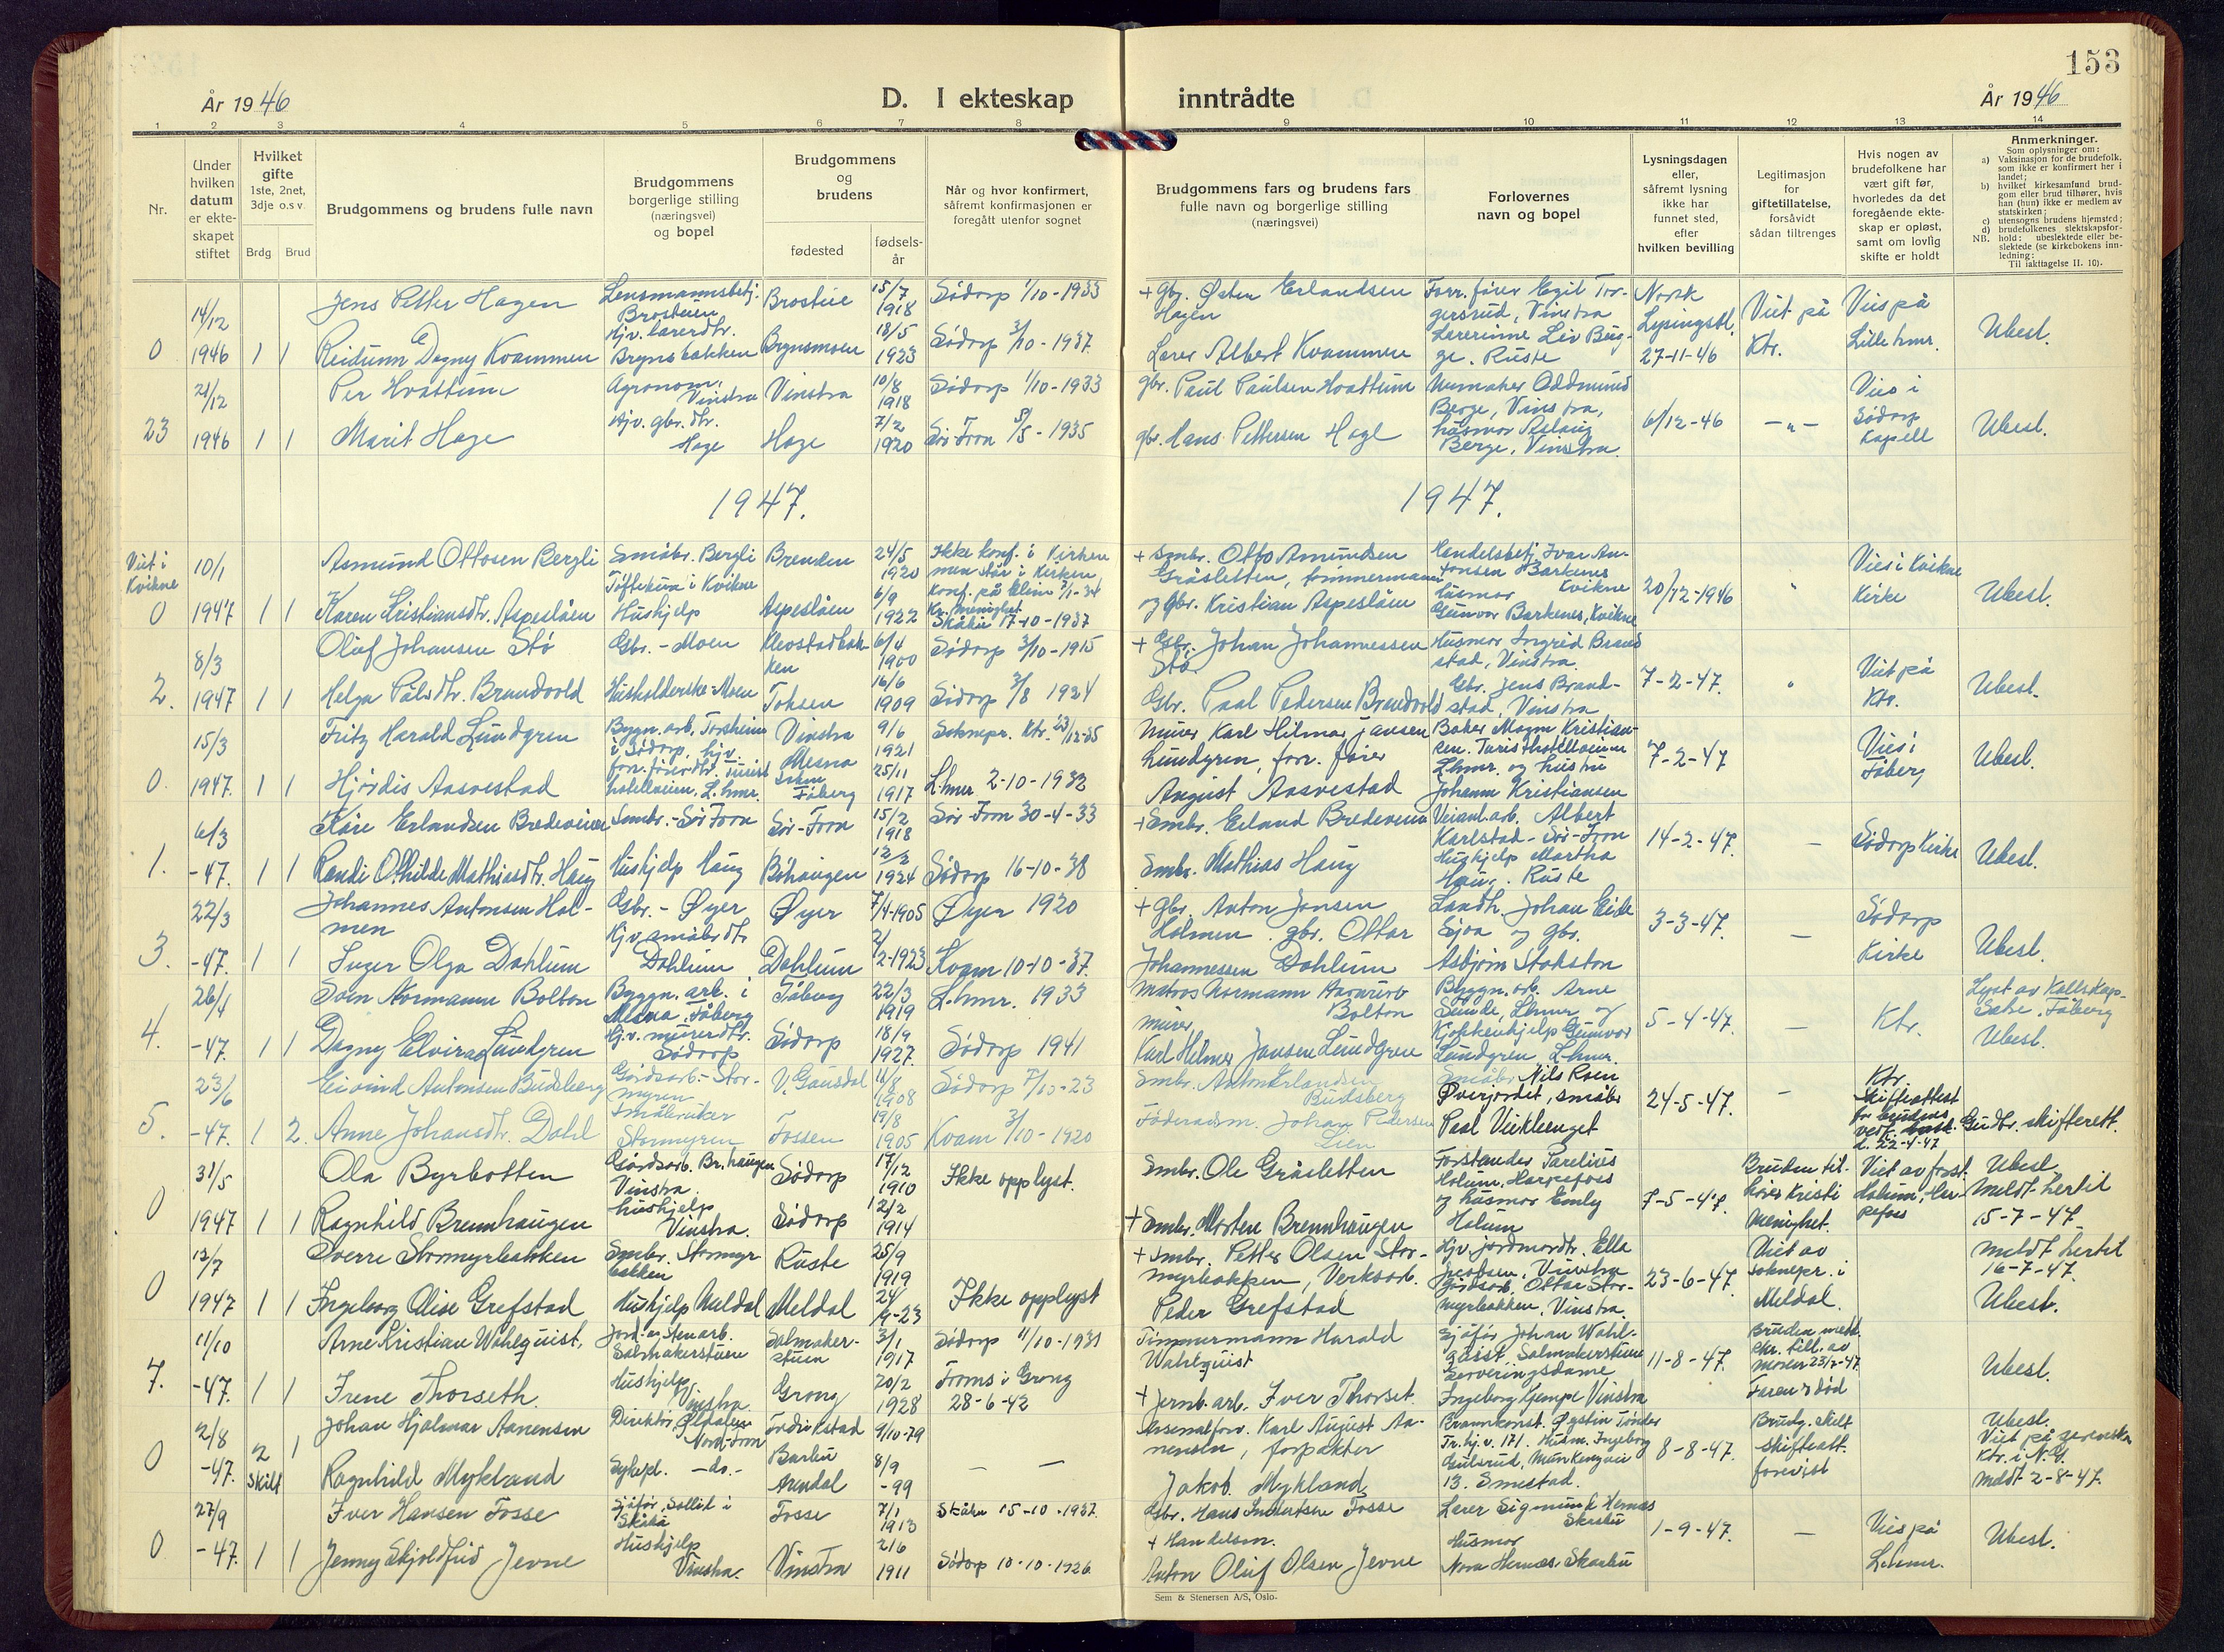 153
År 1946
D. I ekteskap
inntrådte
År 1946
1 2 3 4 5 6 7 8 9 10 11 12 13 14
Nr.
Under hvilken datum er ekteskapet stiftet
Hvilket gifte 1ste, 2net, 3dje o.s v.
Brdg Brud
Brudgommens og brudens fulle navn
Brudgommens borgerlige stilling (næringsvei) og bopel
Brudgommens og brudens
fødested
fødselsår
Når og hvor konfirmert, såfremt konfirmasjonen er foregått utenfor sognet
Brudgommens fars og brudens fars fulle navn og borgerlige stilling (næringsvei)
Forlovernes navn og bopel
Lysningsdagen eller, såfremt lysning ikke har funnet sted, efter hvilken bevilling
Legitimasjon for giftetillatelse, forsåvidt sådan tiltrenges
Hvis nogen av brudefolkene har vært gift før, hvorledes da det foregående ekteskap er opløst, samt om lovlig skifte er holdt
Anmerkninger.
Som oplysninger om:
a) Vaksinasjon for de brudefolk. som ikke er konfirmert her i landet;
b) hvilket kirkesamfund brudgom eller brud tilhører, hvis han (hun) ikke er medlem av statskirken;
c) utensogns brudens hjemsted;
d) brudefolkenes slektskapsforhold: ubeslektede eller beslektede (se kirkebokens innledning:
NB.
Til iakttagelse II. 10).
14/12 Jens Petter Hagen Lensmannsbetj. Brostuen Brostue 15/7 1918 Södorp 1/10-1933 + Gbr. Østen Erlandsen Hagen Forr.fører Egil Torgersrud, Vinstra Norsk Lysingsbl. Viet på Vies på
0 1946 1 1 Reidunn Dagny Kvammen Hjv. lærerdtr. Brynsbakken Brynsmoen 18/5 1923 Södorp 3/10-1937 Lærer Albert Kvammen Lærerinne Liv Ruste 27-11-46 Ktr. Lillehmr. Ubesl.
21/12 Per Hvattum Agronom, Vinstra Vinstra 10/8 1918 Södorp 1/10-1933 gbr. Paul Paulsen Hvattum Urmaker Oddmund Berge, Vinstra, Vies i
23 1946 1 1 Marit Hage Hjv. gbr.dtr. Hage Hage 7/2 1920 Sør Fron 5/5-1935 gbr. Hans Pettersen Hage husmor Berge, Vinstra 6/12-46 -"- Södorp Kapell Ubesl.
1947. 1947.
Viet i Kvikne 10/1 Asmund Ottosen Bergli Småbr. Bergli Brenden 24/5 1920 Ikke konf. i Kirken men står i Kirken + Smbr. Otto Amundsen Gråsletten, tømmermann Handelsbetj. Ivar Antonsen Barkenes Kvikne Vies i Kvikne
0 1947 1 1 Karen Kristiansdtr. Aspeslåen Hushjelp Aspeslåen 6/9 1922 Skåbu 17-10-1937 og Gbr. Kristian Aspeslåen husmor Gunvor Barkenes, Kvikne 20/12-1946 " Kirke Ubesl.
8/3 Oluf Johansen Stø Gbr. - Moen 6/4 1900 Södorp 3/10-1915 + Gbr. Johan Johannessen Stø Husmor Ingrid Brandstad, Vinstra. Viet på
2. 1947 1 1 Helga Pålsdtr. Brandvold Husholderske-Moen Toksen 16/6 1909 Södorp 3/8 1924 Gbr. Paal Pedersen Brandvold Gbr. Jens Brandstad, Vinstra 7-2-47. " Ktr. Ubesl.
15/3 Fritz Harald Lundgren Bygn.arb. i Södorp, hjv. Vinstra 9/6 1921 Soknepr. Ktr. 23/12-35 murer Karl Hilmar Jansen Lundgren, forr. fører Baker Magm Kristiansen. Turisthotellveien Vies i
0. 1947. 1 1 Hjørdis Aasvestad forr.førerdtr. Turisthotellveien, L.hmr. Mesna Fåberg 25/11 1917 L.hmr 2-10-1932 August Aasvestad L.hmr. og hustru Johann Kristiansen 7-2-47 Fåberg Ubesl.
6/3 Kåre Erlandsen Bredeveien Smbr.-Sør Fron Sør-Fron 15/2 1918 Sør-Fron 30-4-33 + Smbr. Erland Bredeveien Veianl.arb. Albert Karlstad-Sør-Fron
1. -47. 1 1 Randi Othilde Mathiasdtr. Haug Hushjelp Haug Bøhaugen 12/2 1924 Södorp 16-10-38 Smbr. Mathias Haug Hushjelp Martha Haug. Ruste 14-2-47. - Södorp Kirke Ubesl.
22/3 Johannes Antonsen Holmen Gbr. - Øyer Øyer 7/4-1905 Øyer 1920 + gbr. Anton Jonsen Holmen. gbr. Ottar Landh. Johan Eide Sjoa og gbr. Södorp
3. -47. 1 1 Inger Olga Dahlum Hjv. småbr.dtr. Dahlum Dahlum 2/2-1923 Kvam 10-10-37. Johannessen Dahlum Asbjørn Stokston 3-3-47. - Kirke Ubesl.
26/4 Svein Normann Bolton Byggn. arb. i Mesna. Fåberg Fåberg 22/3 1919 L.hmr. 1933 matros Normann Bolton Byggn.arb. Arne Sunde, Lhmr og Lyst av
4. -47. 1 1 Dagny Elvira Lundgren Hj.v. murerdtr. Södorp Södorp 18/9 1927. Södorp 1941 murer Karl Helmer Jansen Lundgren Kjøkkenhjelp Gunvor Lundgren L.hmr. 5-4-47. - Ktr. Fåberg Ubesl.
23/6 Eivind Antonsen Budsberg Gårdsarb.-Stormyren V. Gausdal 11/8 1908 Södorp 7/10-23 Smbr. Anton Erlandsen Budsberg Småbr Nils Roen Øverjordet, småbr Ktr. Skifteattest for brudens vedk.
5. -47. 1 2. Anne Johansdtr. Dahl Småbruker Stormyren Fossen 19/8 1905 Kvam 3/10-1920 Føderådsm. Johan Pedersen Lien Paal Veiklenget 24-5-47. - d. 22-4-47 Gudbr. skifterett.
31/5 Ola Byrbotten Gårdsarb. Br.haugen Vinstra Södorp 17/12 1910 Ikke opplyst. Smbr. Ole Gråsletten Forstander Tarelius Holum, Harpefoss Bruden til- Viet av forst. Ubesl.
0 1947 1 1 Ragnhild Brennhaugen hushjelp Vinstra. Södorp 12/2 1914 + Smbr. Morten Brennhaugen og husmor Emly Holum 7-5-47. hører Kristi Menighet. Holum, Harpefoss meldt hertil 15-7-47.
12/7 Sverre Stormyrbakken Smbr. Stormyrbakken Ruste 25/9 1919 + Smbr. Petter Olsen Stormyrbakken, Verksarb. Hjv. jordmordtr. Ella Jacobsen, Vinstra Viet av meldt hertil 16-7-47.
0 1947 1 1 Ingeborg Alise Grefstad Hushjelp Meldal Meldal 24/9-23 Ikke opplyst Peder Grefstad Gårdsarb. Ottar Stormyrbakken, Vinstra 23-6-47. soknepr. i Meldal. Ubesl.
11/10 Arne Kristian Wahlquist. Jord- og stenarb. Salmakerstuen Salmakerstuen 3/1 1917 Södorp 11/10-1931 Timmermann Harald Wahlquist Sjåfør Johan Wahlquist, Salmakerstuen Bruden
7. -47. 1 1 Irene Thorseth. Hushjelp, Vinstra Grong 20/2 1928 Froms i Grong 28-6-42 + Jernb.arb. Iver Thorset. Serveringsdame Ingeborg Kjempe Vinstra 11-8-47. moren 23/2-47. Faren død Ubesl.
2/8 Johan Hjalmar Aanensen Direktør, Nord-Fron Fredrikstad 9/10-79 Arsenalforv. Karl August Aanensen, forpakter Øystein Tønder Tr.hj.v. 171. Husm. Ingeborg Brudg. skilt Ubesl. Viet på
0 -47. 2 skilt 1 Ragnhild Mykland Sykepl. -do.- Barbu Arendal 8/9 -99 - - Jakob Mykland Gulsrud, 13. Smestad. 8-8-47. skifteatt. forevist Ktr. i N.Y. meldt 2-8-47.
27/9 Iver Hansen Fosse Sjåfør, Sollid i Skåbu Fosse 7/1 1913 Skåbu 15-10-1937. Gbr. Hans Fosse Lærer Sigmund Hernæs Skåbu Vies på
0 -47. 1 1 Jenny Skjoldfrid Jevne Hushjelp Vinstra. Vinstra 21/6 1911 Södorp 10-10-1926 + Handelsm. Anton Oluf Olsen Jevne Husmor Nora Hernæs, Skåbu 1-9-47. - L.hmr. Ubesl.
Sem & Stenersen A/S, Oslo.